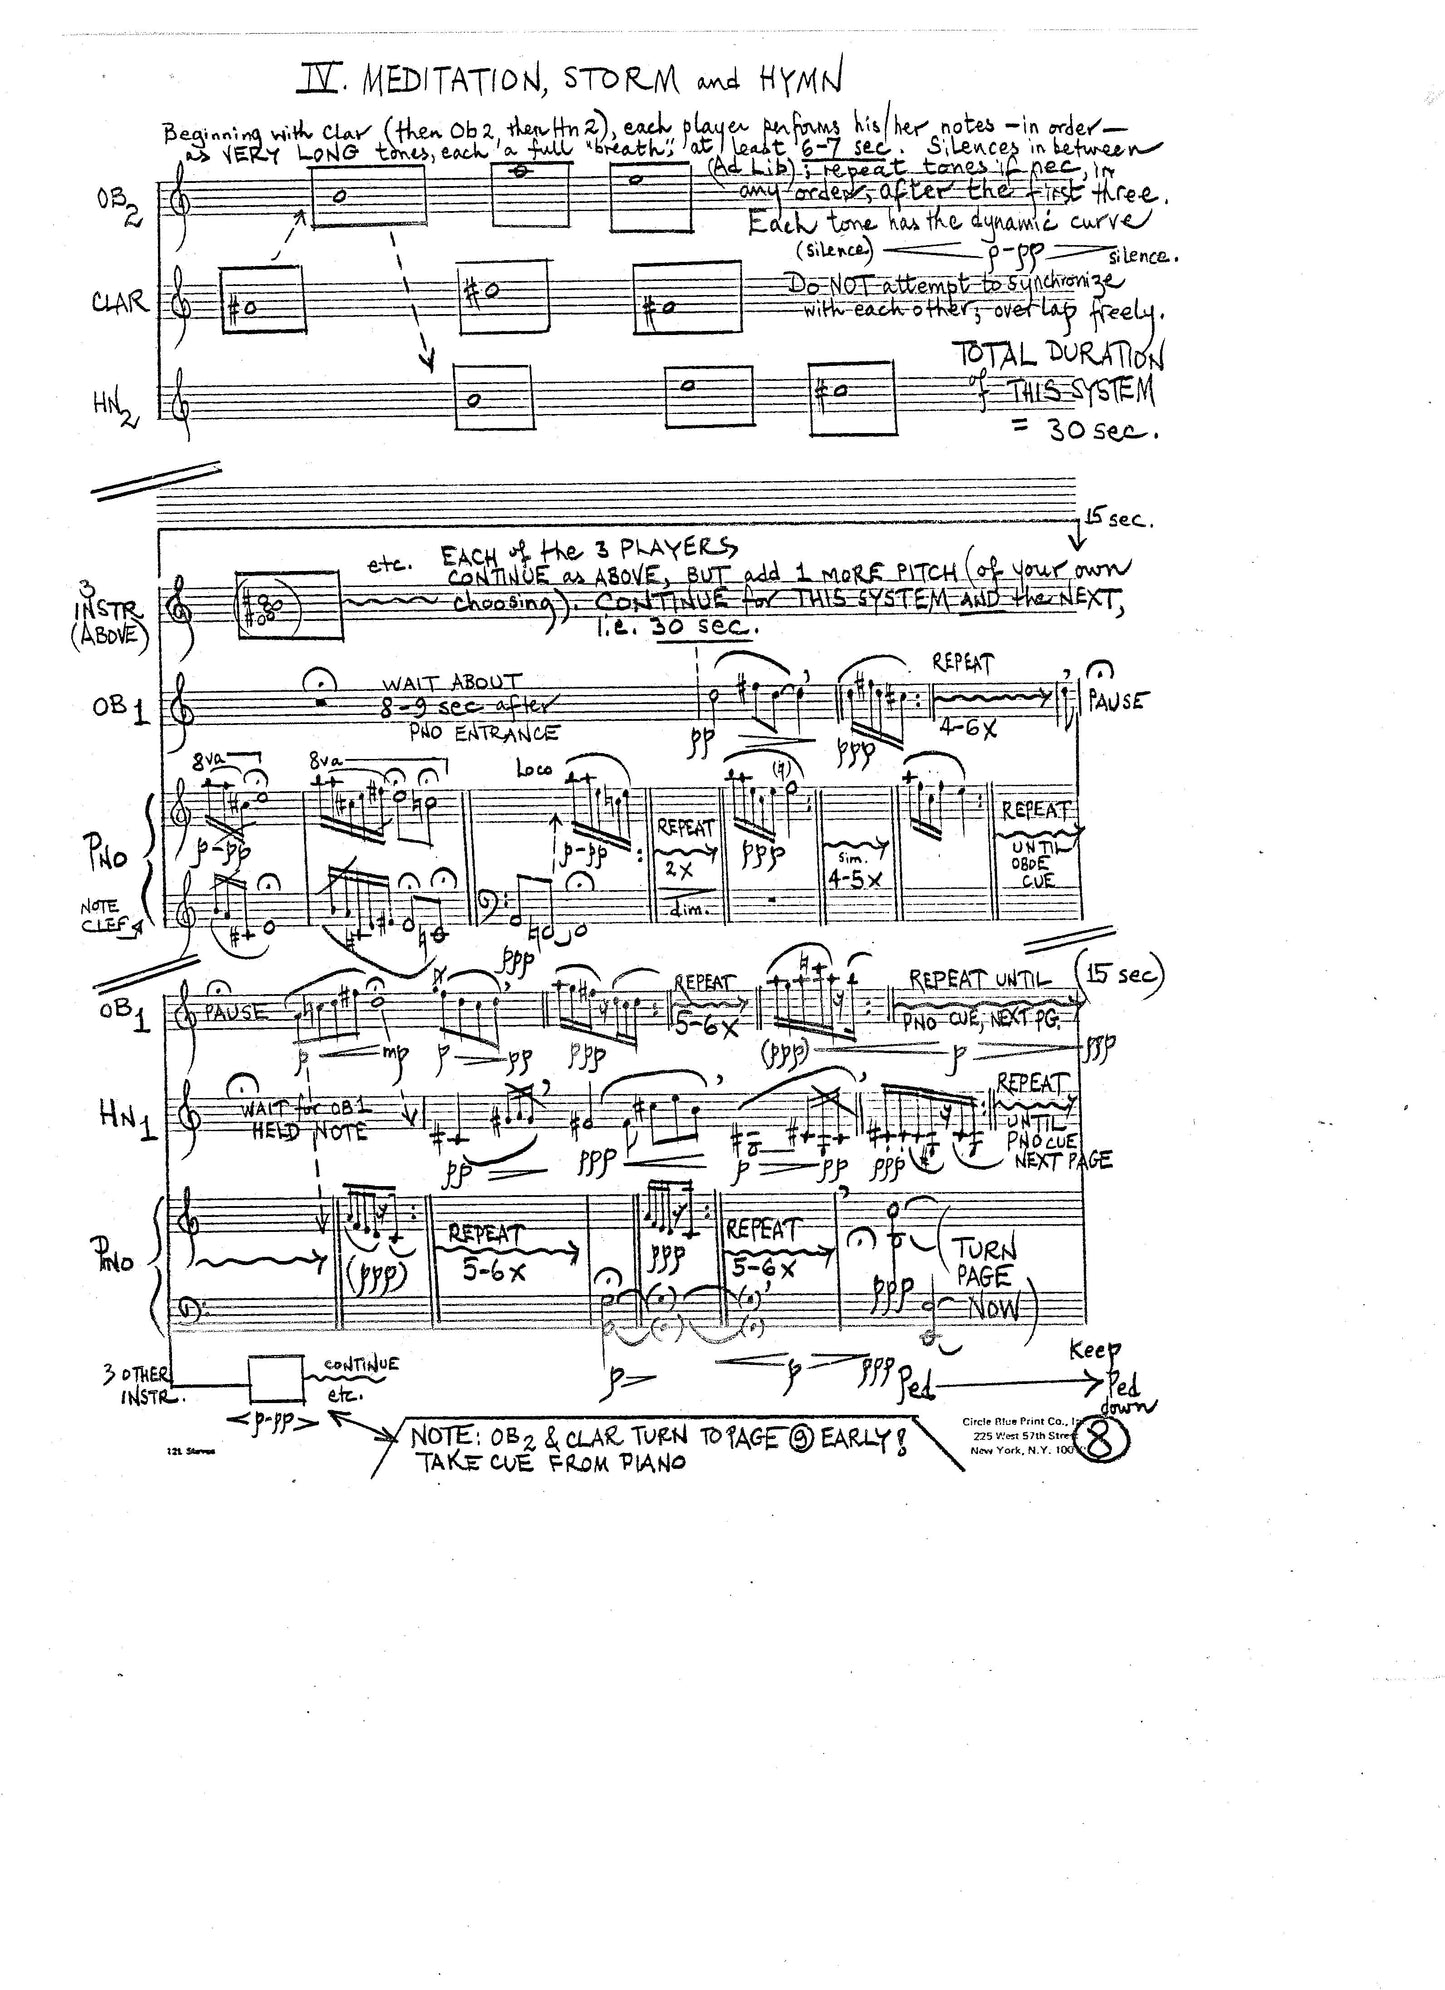 IV. MEDITATION, STORM and HYMN
Beginning with Clar (then Ob 2, then Hn 2), each player performs his/her notes – in order –
as VERY LONG tones, each a full "breath", at least 6-7 sec. Silences in between
(Ad Lib); repeat tones if nec, in
any order, after the first three.
Each tone has the dynamic curve
(silence) p-pp silence.
Do NOT attempt to synchronize
with each other; overlap freely.
TOTAL DURATION
of THIS SYSTEM
= 30 sec.
OB2
CLAR
HN2
15 sec.
3
INSTR
(ABOVE)
etc.
EACH of the 3 PLAYERS
CONTINUE as ABOVE, BUT add 1 MORE PITCH (of your own
choosing). CONTINUE for THIS SYSTEM AND the NEXT,
i.e. 30 sec.
OB1
WAIT ABOUT
8-9 sec after
PNO ENTRANCE
pp
ppp
REPEAT
4-6X
PAUSE
PNO
8va
8va
Loco
p-pp
p-pp
REPEAT
2X
dim.
ppp
sim.
4-5X
REPEAT
UNTIL
OBOE
CUE
NOTE
CLEF
ppp
OB1
PAUSE
p mp p pp ppp
REPEAT
5-6X
(ppp) p ppp
REPEAT UNTIL
PNO CUE, NEXT PG.
(15 sec)
HN1
WAIT for OB1
HELD NOTE
pp ppp p pp ppp
REPEAT
UNTIL
PNO CUE
NEXT PAGE
PNO
(ppp)
REPEAT
5-6X
ppp
REPEAT
5-6X
ppp
(TURN
PAGE
NOW)
p p ppp
Ped
Keep
Ped
down
3 OTHER
INSTR.
CONTINUE
etc.
<p-pp>
NOTE: OB2 & CLAR TURN TO PAGE 9 EARLY!
TAKE CUE FROM PIANO
Circle Blue Print Co.,
225 West 57th Street
New York, N.Y.
8